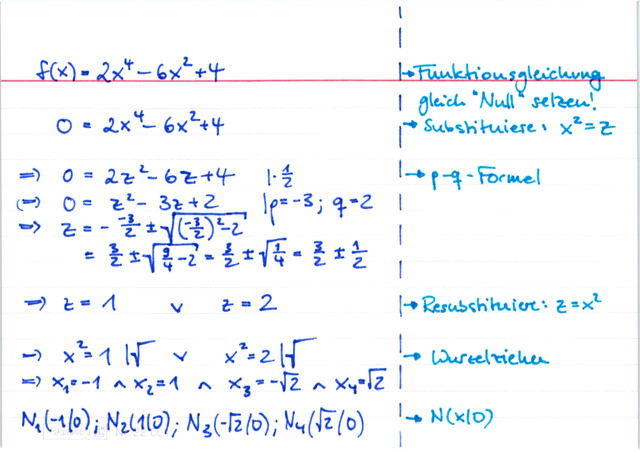 f(x) = 2x⁴ - 6x² + 4 → Funktionsgleichung
gleich "Null" setzen!
0 = 2x⁴ - 6x² + 4 → Substituiere: x² = z
⇒ 0 = 2z² - 6z + 4 |· 1/2 → p-q-Formel
⇔ 0 = z² - 3z + 2 | p = -3 ; q = 2
⇒ z = - -3/2 ± √((-3/2)² - 2)
= 3/2 ± √(9/4 - 2) = 3/2 ± √(1/4) = 3/2 ± 1/2
⇒ z = 1 ∨ z = 2 → Resubstituiere: z = x²
⇒ x² = 1 |√ ∨ x² = 2 |√ → Wurzelziehen
⇒ x₁ = -1 ∧ x₂ = 1 ∧ x₃ = -√2 ∧ x₄ = √2
N₁(-1|0); N₂(1|0); N₃(-√2|0); N₄(√2|0) → N(x|0)